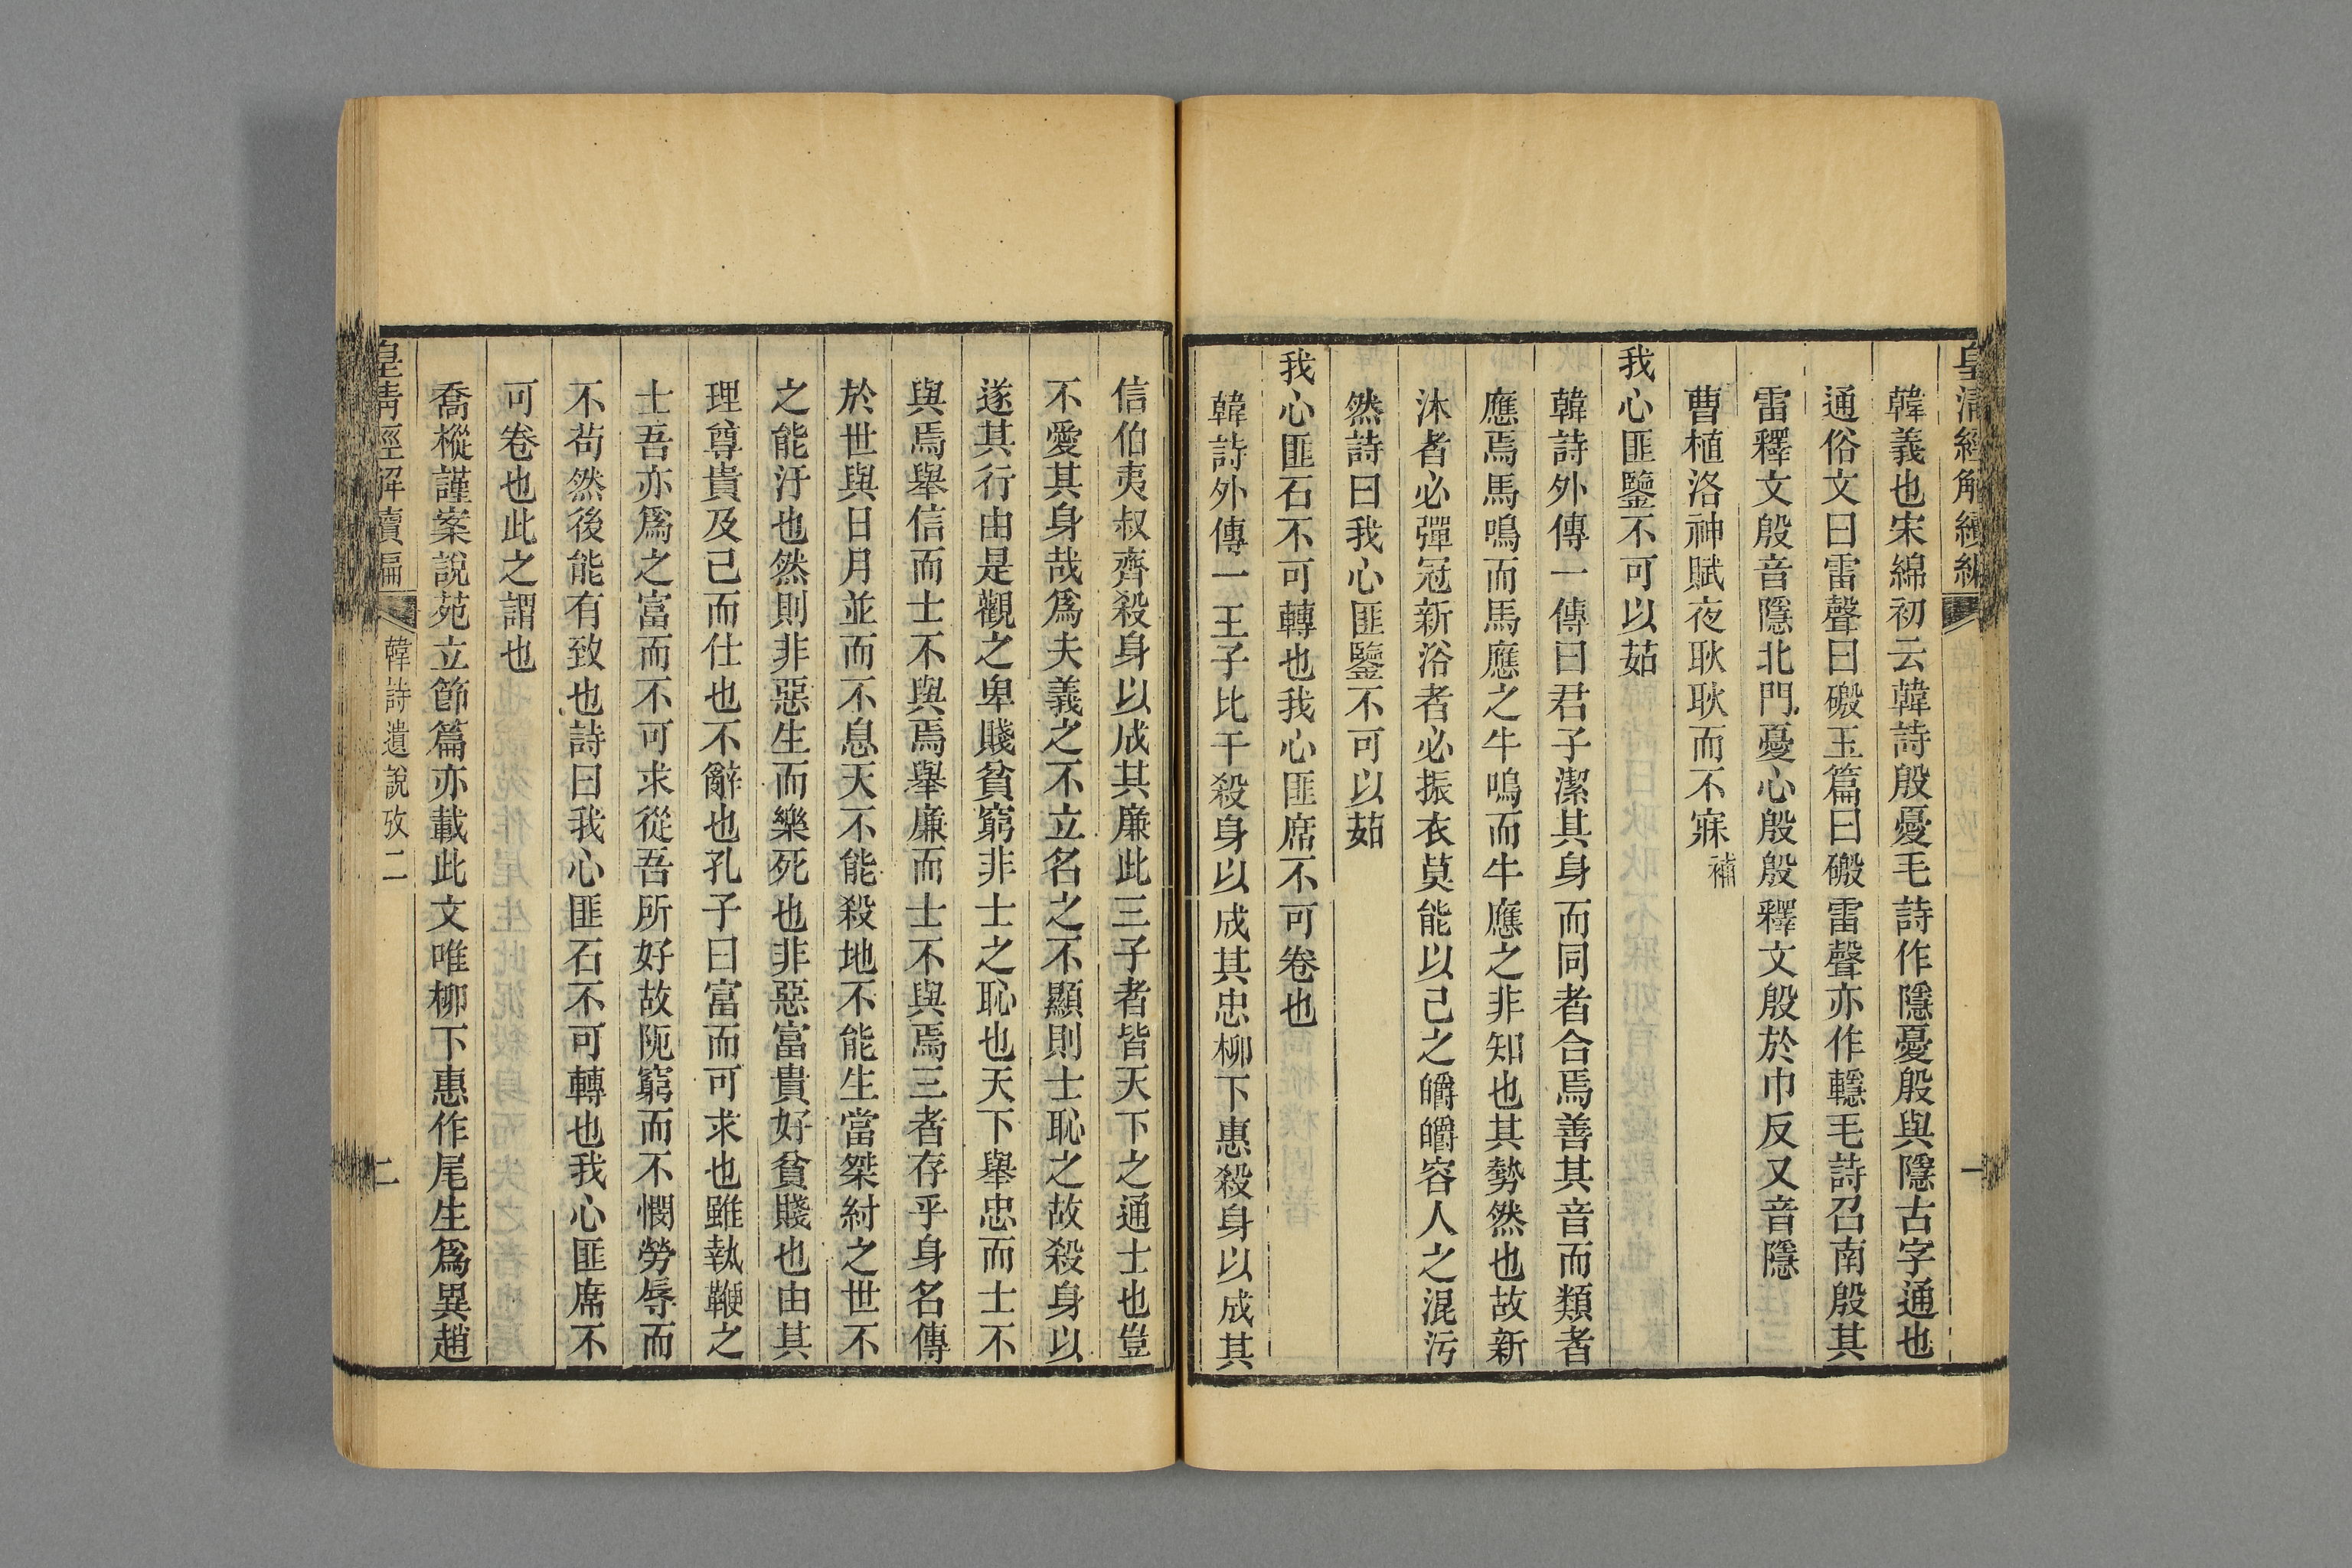 皇清經解續編
一
韓義也宋綿初云韓詩殷憂毛詩作隱憂殷與隱古字通也
通俗文曰雷聲曰磤玉篇曰磤雷聲亦作轜毛詩召南殷其
雷釋文殷音隱北門憂心殷殷釋文殷於巾反又音隱
曹植洛神賦夜耿耿而不寐補
我心匪鑒不可以茹
韓詩外傳一傳曰君子潔其身而同者合焉善其音而類者
應焉馬鳴而馬應之牛鳴而牛應之非知也其勢然也故新
沐者必彈冠新浴者必振衣莫能以己之皭皭容人之混污
然詩曰我心匪鑒不可以茹
我心匪石不可轉也我心匪席不可卷也
韓詩外傳一王子比干殺身以成其忠柳下惠殺身以成其
信伯夷叔齊殺身以成其廉此三子者皆天下之通士也豈
不愛其身哉爲夫義之不立名之不顯則士恥之故殺身以
遂其行由是觀之卑賤貧窮非士之恥也天下舉忠而士不
與焉舉信而士不與焉舉廉而士不與焉三者存乎身名傳
於世與日月並而不息天不能殺地不能生當桀紂之世不
之能汙也然則非惡生而樂死也非惡富貴好貧賤也由其
理尊貴及己而仕也不辭也孔子曰富而可求也雖執鞭之
士吾亦爲之富而不可求從吾所好故阨窮而不憫勞辱而
不苟然後能有致也詩曰我心匪石不可轉也我心匪席不
可卷也此之謂也
喬樅謹案說苑立節篇亦載此文唯柳下惠作尾生爲異趙
皇清經解續編
韓詩遺說攷二
二